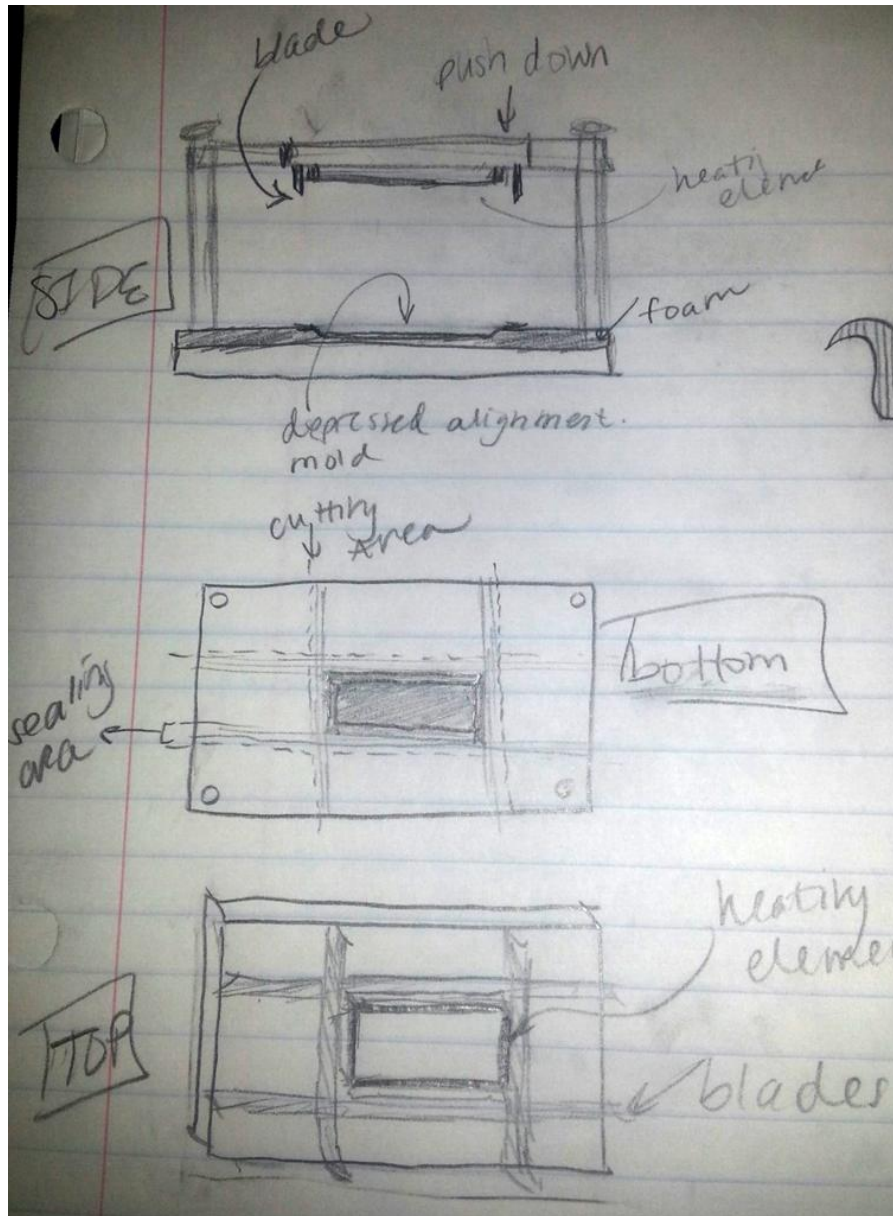 blade
push down
heatin
eleme
SIDE
foam
depressed alignment.
mold
cutting
area
bottom
sealing
area
heating
elemen
TOP
blades